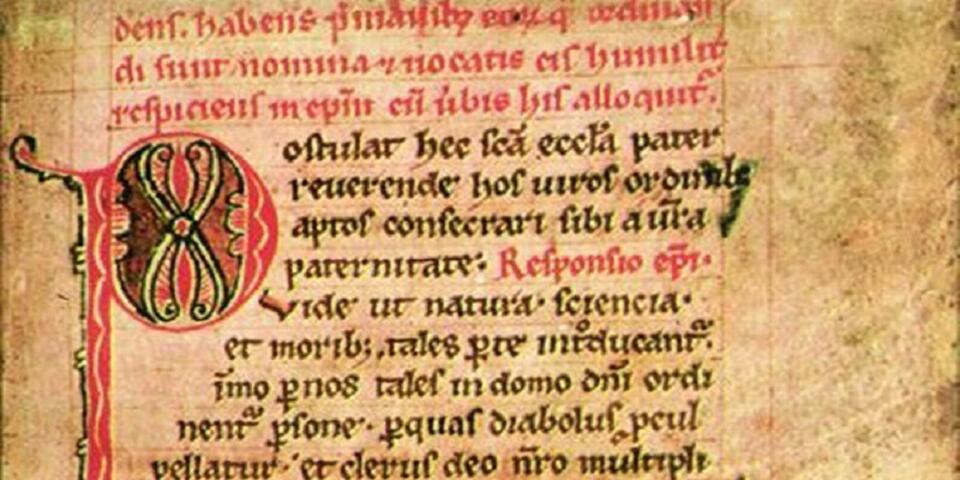 dens. habens p̄ manib; eoꝝ q̇ ordinan
di sunt nomina ⁊ uocatis eis humilit̄
respiciens in ep̄m cū ūbis his alloquit᷑.
Postulat hec sc̄a eccl̄a pater
reuerende hos uiros ordinib;
aptos consecrari sibi a ūra
paternitate. Responsio ep̄i.
Vide ut natura. sciencia.
et morib; tales ꝑ te introducant᷑.
īmo ꝑ nos tales in domo dn̄i ordi
nent᷑ ꝑsone. ꝑ quas diabolus pcul
pellatur. et clerus deo nr̄o multipli